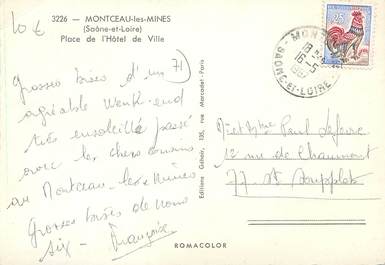 10 €
3226 - MONTCEAU-les-MINES
(Saône-et-Loire)
Place de l'Hôtel de Ville
71
Grosses bises d'un
agréable Week-end
très ensoleillé passé
avec les chers cousins
au Montceau-les-Mines
Grosses bises de nous
six - Françoise
Editions Gélain, 135, rue Marcadet - Paris
MONT
16-5
SAONE-ET-LOIRE
25
et Mme Paul Lefevre
12 rue de Chaumont
77 - St Soupplets
ROMACOLOR